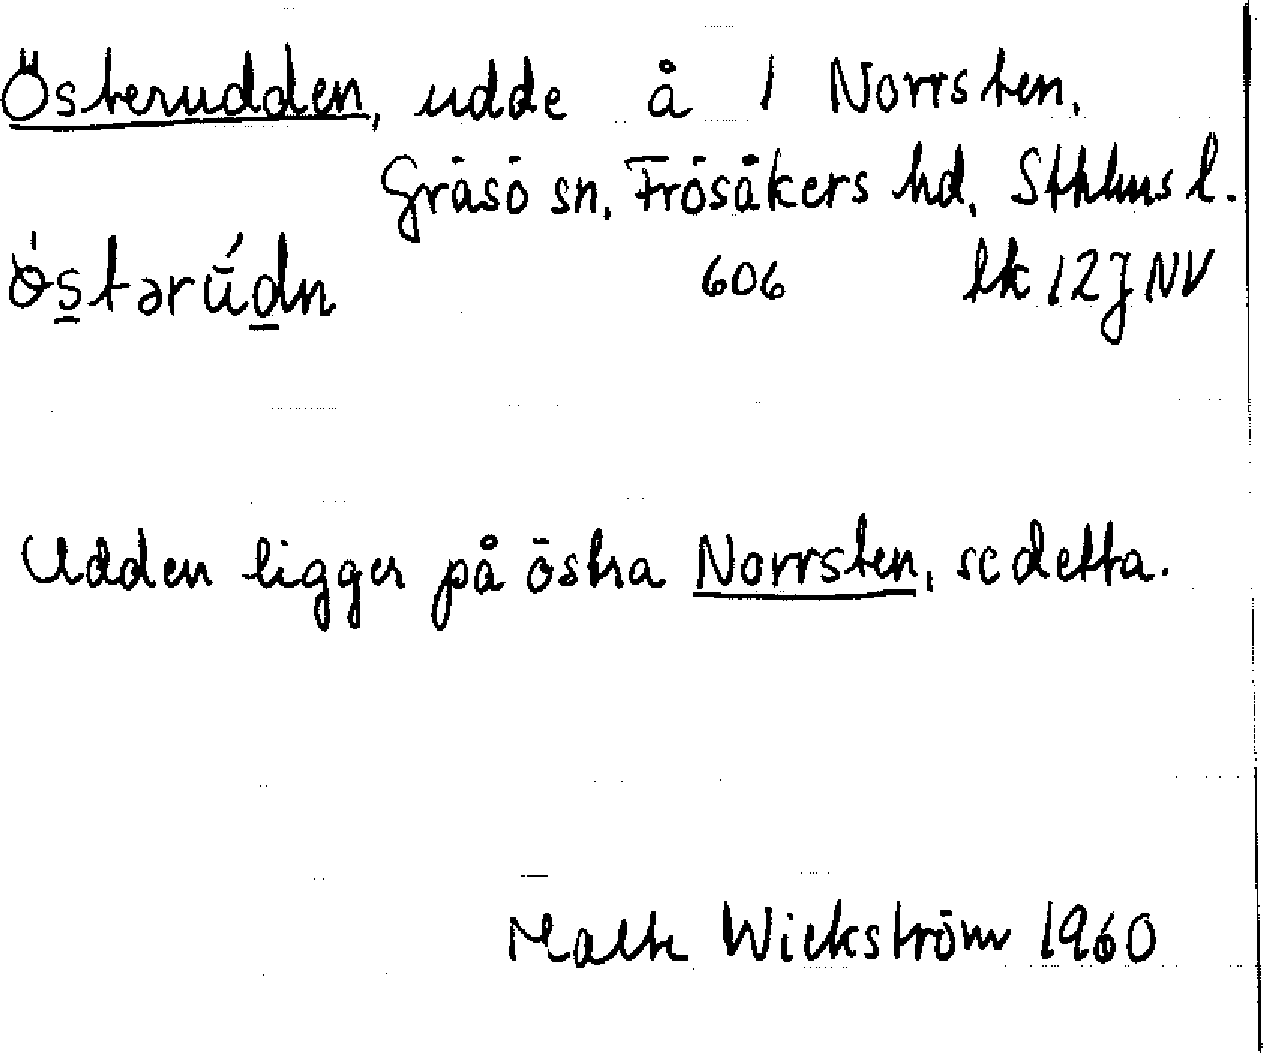 Österudden, udde å 1 Norrsten,
Gräsö sn, Frösåkers hd, Sthlms l.
ö́stərū́dn 606 lk 12J NV
Udden ligger på östra Norrsten, se detta.
Wickström 1960